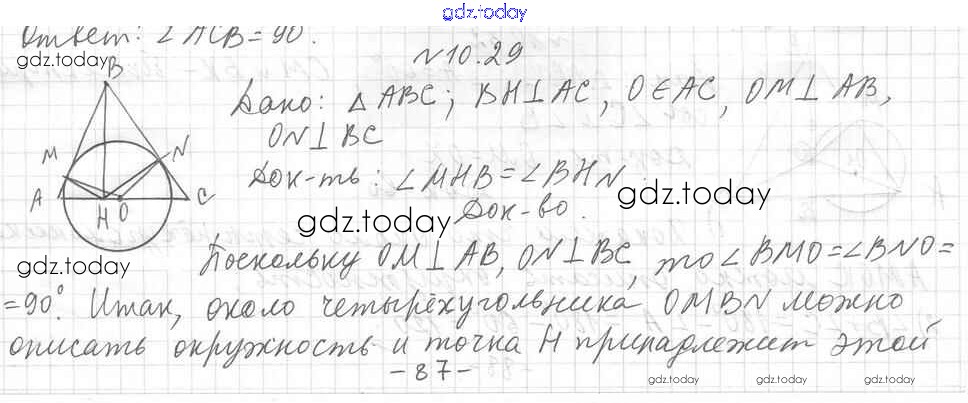 gdz.today
Ответ: ∠ACB = 90°.
gdz.today
№10.29
B
M
N
A
H
O
C
Дано: △ABC; BH⊥AC, O∈AC, OM⊥AB,
ON⊥BC
Док-ть: ∠MHB = ∠BHN.
gdz.today
gdz.today
Док-во.
gdz.today
Поскольку OM⊥AB, ON⊥BC, то ∠BMO=∠BNO=
=90°. Итак, около четырёхугольника OMBN можно
описать окружность и точка H принадлежит этой
-87-
gdz.today
gdz.today
gdz.today